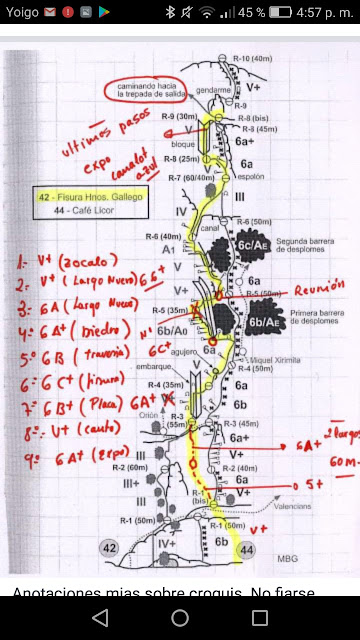 Yoigo 45 % 4:57 p. m.
R-10 (40m)
caminando hacia
la trepada de salida
gendarme
V+
R-9
R-9 (30m)
R-8 (bis)
R-8 (45m)
ultimos pasos
V
6a+
bloque
expo
canalot
azul
R-8 (25m)
6a
R-7 (60/40m)
espolón
42 - Fisura Hnos. Gallego
44 - Café Licor
III
IV
R-6 (50m)
canal
R-6 (40m)
6c/AE
Segunda barrera
de desplomes
A1
V
1ª- V+ (zocalo)
6a
V+
Reunión
2ª- V+ (Largo Nuevo) 6a+
R-5 (50m)
3ª- 6A (Largo Nuevo)
R-5 (35m)
Primera barrera
de desplomes
6b/AE
4ª- 6A+ (Diedro)
6b/A0
5ª- 6B (travesia) 6C+
agujero
6a
Miquel Xirimita
R-4 (50m)
6ª- 6C+ (fisura)
embarque
V
6a
R-4 (35m)
7ª- 6B+ (Placa) 6A+
6b
Orión
R-3
(55m)
R-3 (45m)
8ª- V+ (canto)
6a+
6A+
2 largos
9ª- 6A+ (expo)
III
V+
60m
R-2 (60m)
R-2 (40m)
III+
6a
5+
R-1
(bis)
V+
III
Valencians
R-1 (50m)
R-1 (50m)
V+
42
IV+
6b
44
MBG
Anotaciones mias sobre croquis. No fiarse